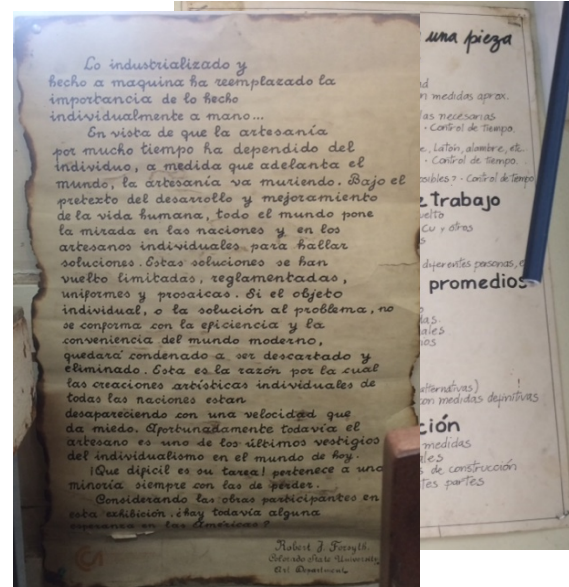 Lo industrializado y
hecho a maquina ha reemplazado la
importancia de lo hecho
individualmente a mano...
En vista de que la artesanía
por mucho tiempo ha dependido del
individuo, a medida que adelanta el
mundo, la artesanía va muriendo. Bajo el
pretexto del desarrollo y mejoramiento
de la vida humana, todo el mundo pone
la mirada en las naciones y en los
artesanos individuales para hallar
soluciones. Estas soluciones se han
vuelto limitadas, reglamentadas,
uniformes y prosaicas. Si el objeto
individual, o la solución al problema, no
se conforma con la eficiencia y la
conveniencia del mundo moderno,
quedará condenado a ser descartado y
eliminado. Esta es la razón por la cual
las creaciones artísticas individuales de
todas las naciones estan
desapareciendo con una velocidad que
da miedo. Afortunadamente todavía el
artesano es uno de los últimos vestigios
del individualismo en el mundo de hoy.
¡Que dificil es su tarea! pertenece a una
minoría siempre con las de perder.
Considerando las obras participantes en
esta exhibición. ¿hay todavía alguna
esperanza en las Américas?
Robert J. Forsyth.
Colorado State University
Art Department.
una pieza
medidas aprox.
las necesarias
· Control de Tiempo.
, Latón, alambre, etc.
· Control de Tiempo.
· Control de Tiempo
trabajo
Cu y otros
diferentes personas,
promedios
con medidas definitivas
medidas
de construcción
partes